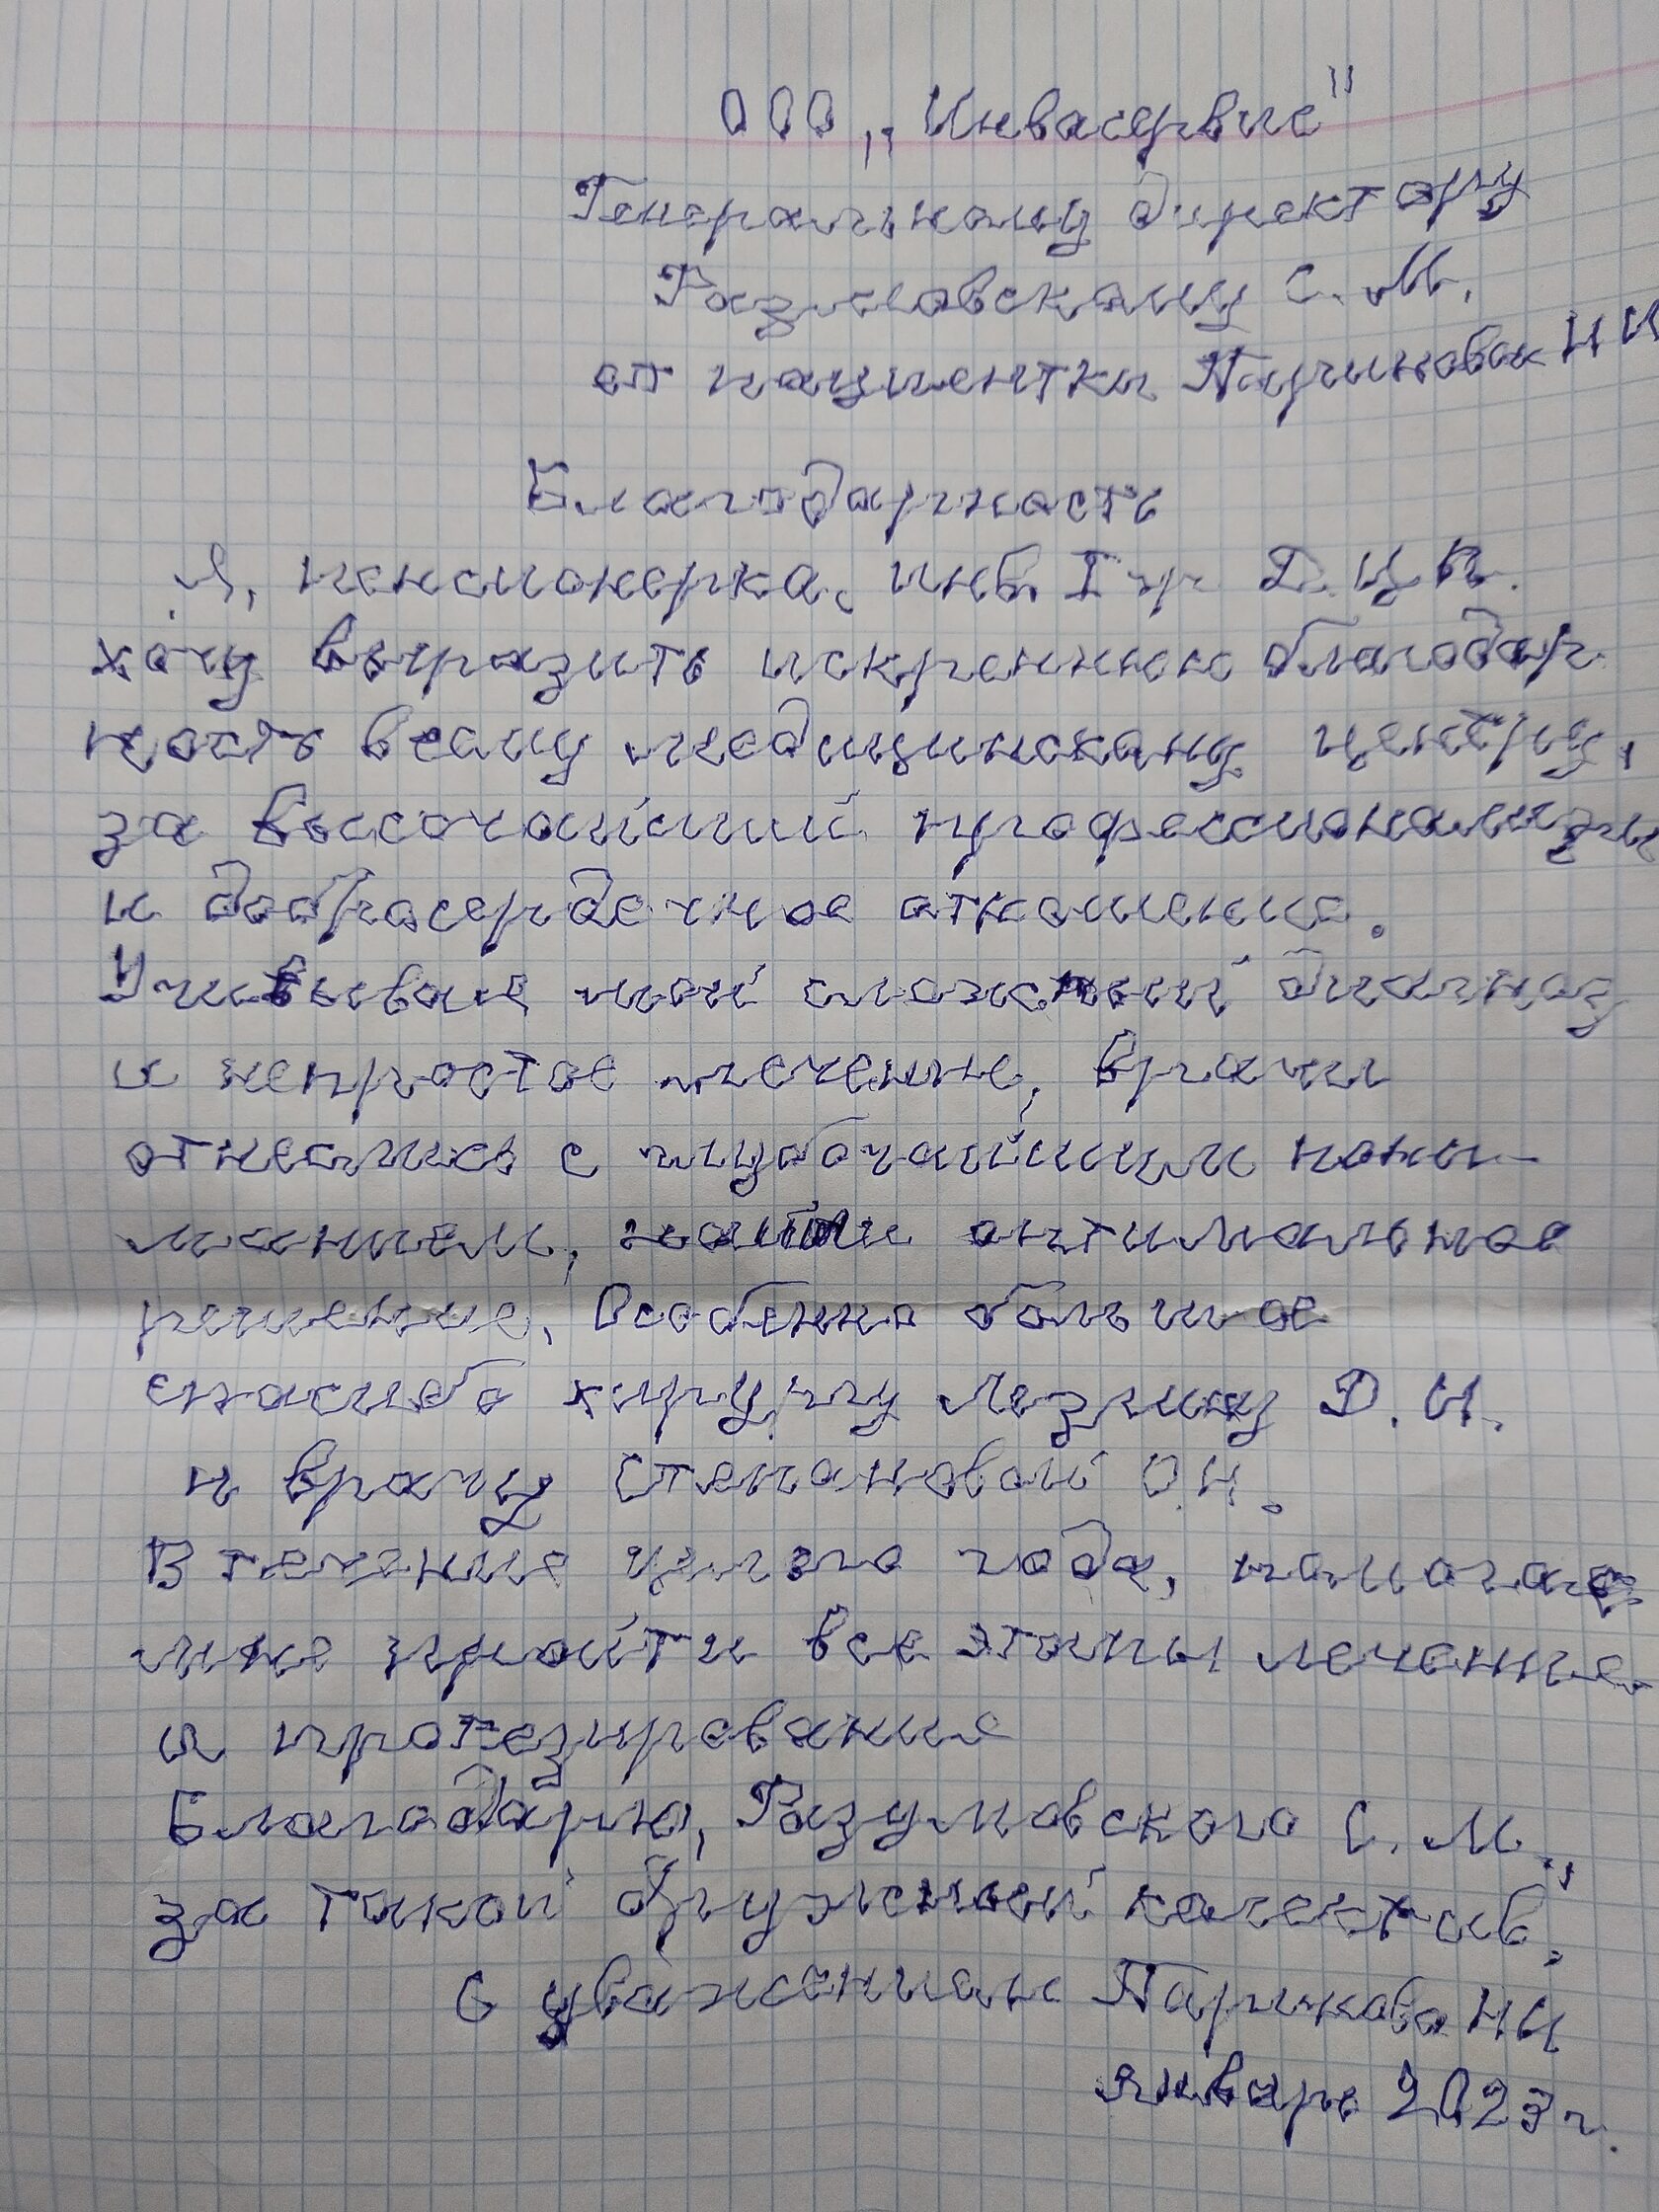 ООО „Инвасервис"
Генеральному директору
Разумовскому С.М.
от пациентки Париновой Н И
Благодарность
Я, пенсионерка, инв. I гр Д.Ц.П.
хочу выразить искреннюю благодар
ность всему медицинскому центру,
за высочайший профессионализм
и добросердечное отношение.
Учитывая мой сложный диагноз
и непростое лечение, врачи
отнеслись с глубочайшим пони-
манием, нашли оптимальное
решение. Особенно большое
спасибо хирургу Лезгину Д.И.
и врачу Степановой О.Н.
В течение целого года, помогая
мне пройти все этапы лечение
и протезирование
Благодарю, Разумовского С.М.,
за такой дружный колектив,
С уважением Паринова Н И
январь 2023 г.